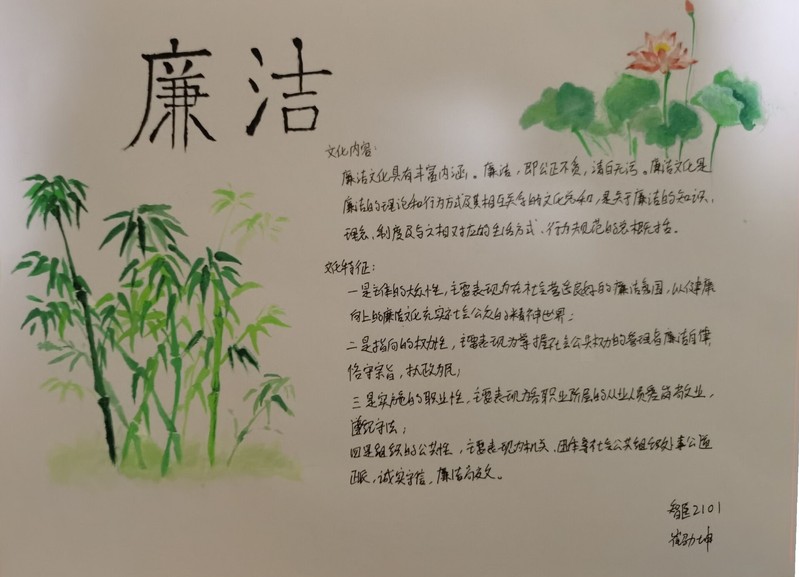 廉洁
文化内容:
廉洁文化具有丰富内涵。廉洁，即公正不贪，清白无污。廉洁文化是
廉洁的理论和行为方式及其相互关系的文化总和，是关于廉洁的知识、
理念、制度及与之相对应的生活方式、行为规范的总概括。
文化特征:
一是主体的大众性，主要表现为在社会营造良好的廉洁氛围，以健康
向上的廉洁文化充实社会公众的精神世界；
二是指向的权力性，主要表现为掌握社会公共权力的管理者廉洁自律
恪守宗旨，执政为民；
三是实施的职业性，主要表现为各职业阶层的从业人员爱岗敬业，
遵纪守法；
四是组织的公共性，主要表现为机关、团体等社会公共组织处事公道
正派，诚实守信，廉洁高效。
智医2101
崔劲坤